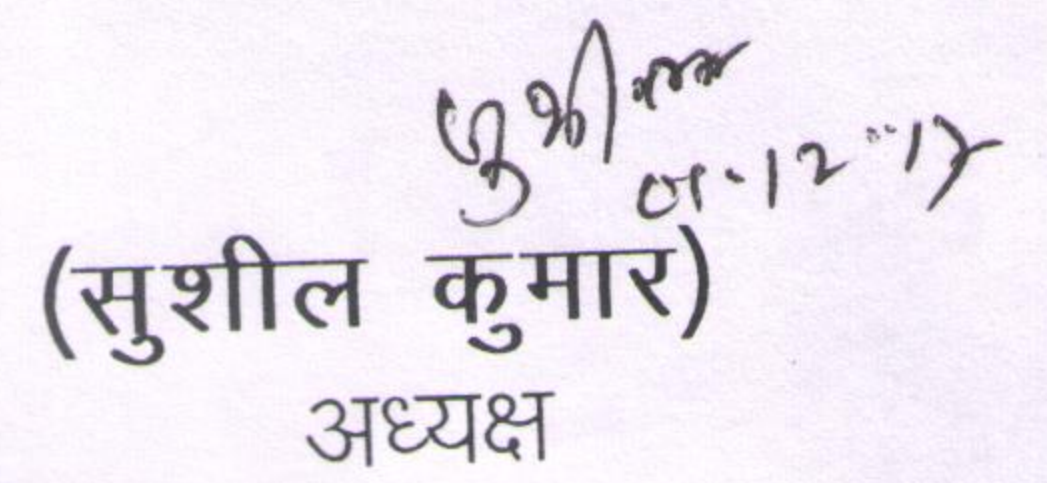 01-12-17
(सुशील कुमार)
अध्यक्ष